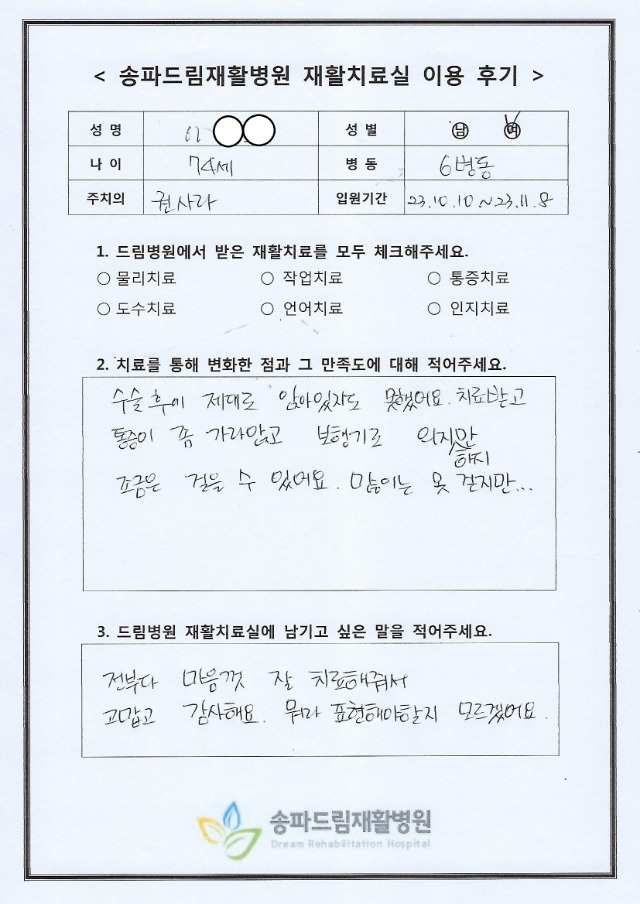 < 송파드림재활병원 재활치료실 이용 후기 >
성 명 성 별 남 여
나 이 74세 병 동 6병동
주치의 권사라 입원기간 23.10.10~23.11.8
1. 드림병원에서 받은 재활치료를 모두 체크해주세요.
○ 물리치료 ○ 작업치료 ○ 통증치료
○ 도수치료 ○ 언어치료 ○ 인지치료
2. 치료를 통해 변화한 점과 그 만족도에 대해 적어주세요.
수술후에 제대로 앉아있지도 못했어요. 치료받고
통증이 좀 가라앉고 보행기로
조금은 걸을 수 있어요. 많이는 못 걷지만...
3. 드림병원 재활치료실에 남기고 싶은 말을 적어주세요.
전부다 마음껏 잘 치료해줘서
고맙고 감사해요. 뭐라 표현해야할지 모르겠어요.
송파드림재활병원
Dream Rehabilitation Hospital